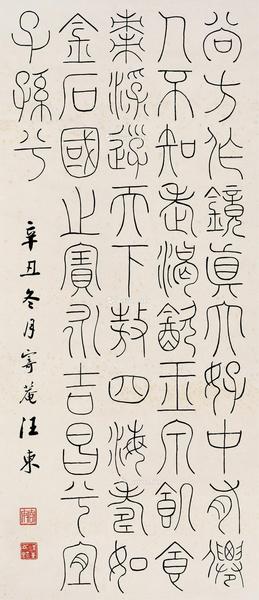 尚方作鏡真大好中有僊
人不知老渴飲玉泉飢食
棗浮遊天下敖四海壽如
金石國之寶永吉昌兮宜
子孫兮
辛丑冬月寄菴汪東